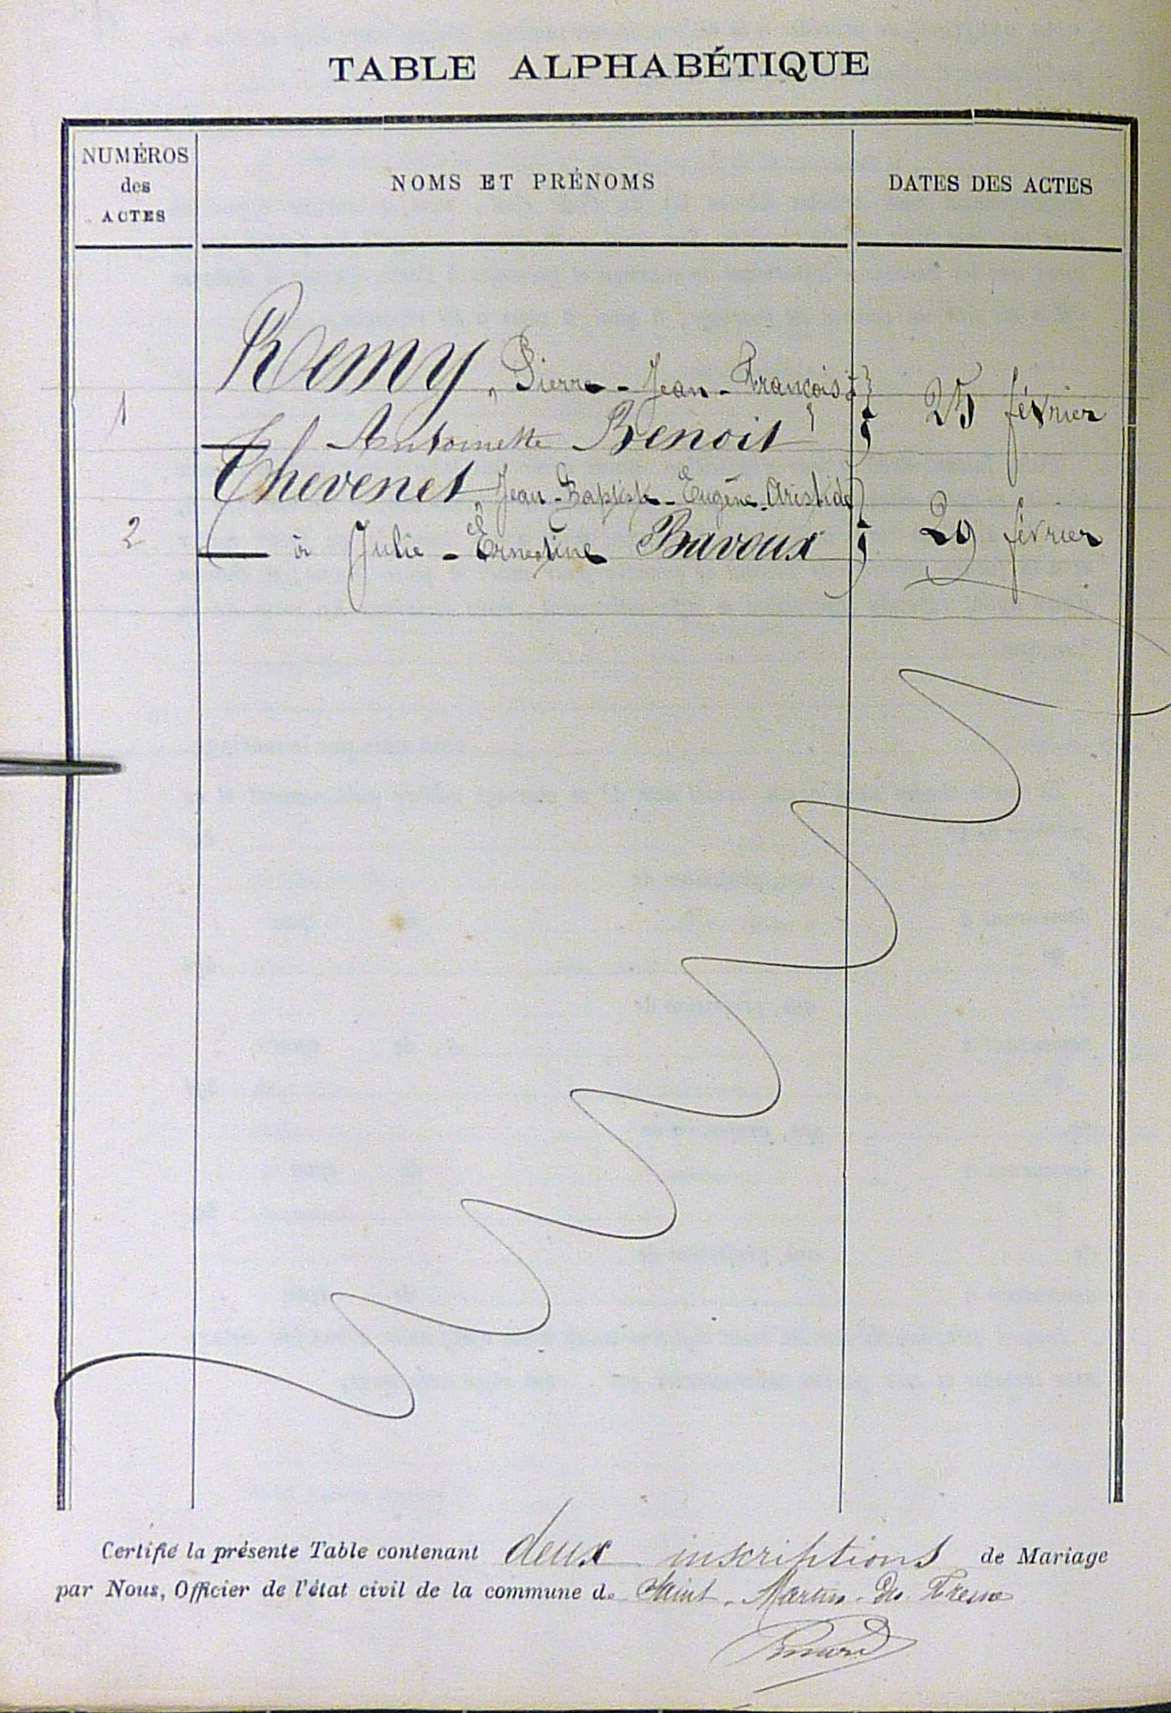 TABLE ALPHABÉTIQUE
NUMÉROS
des
ACTES
NOMS ET PRÉNOMS
DATES DES ACTES
Remy, Pierre - Jean - François
1
25 février
et Antoinette Benoit
Thevenet Jean - Baptiste - Eugène - Aristide
2
29 février
à Julie - Ernestine Bavoux
Certifié la présente Table contenant deux inscriptions de Mariage
par Nous, Officier de l'état civil de la commune de Saint - Martin - du Fresne